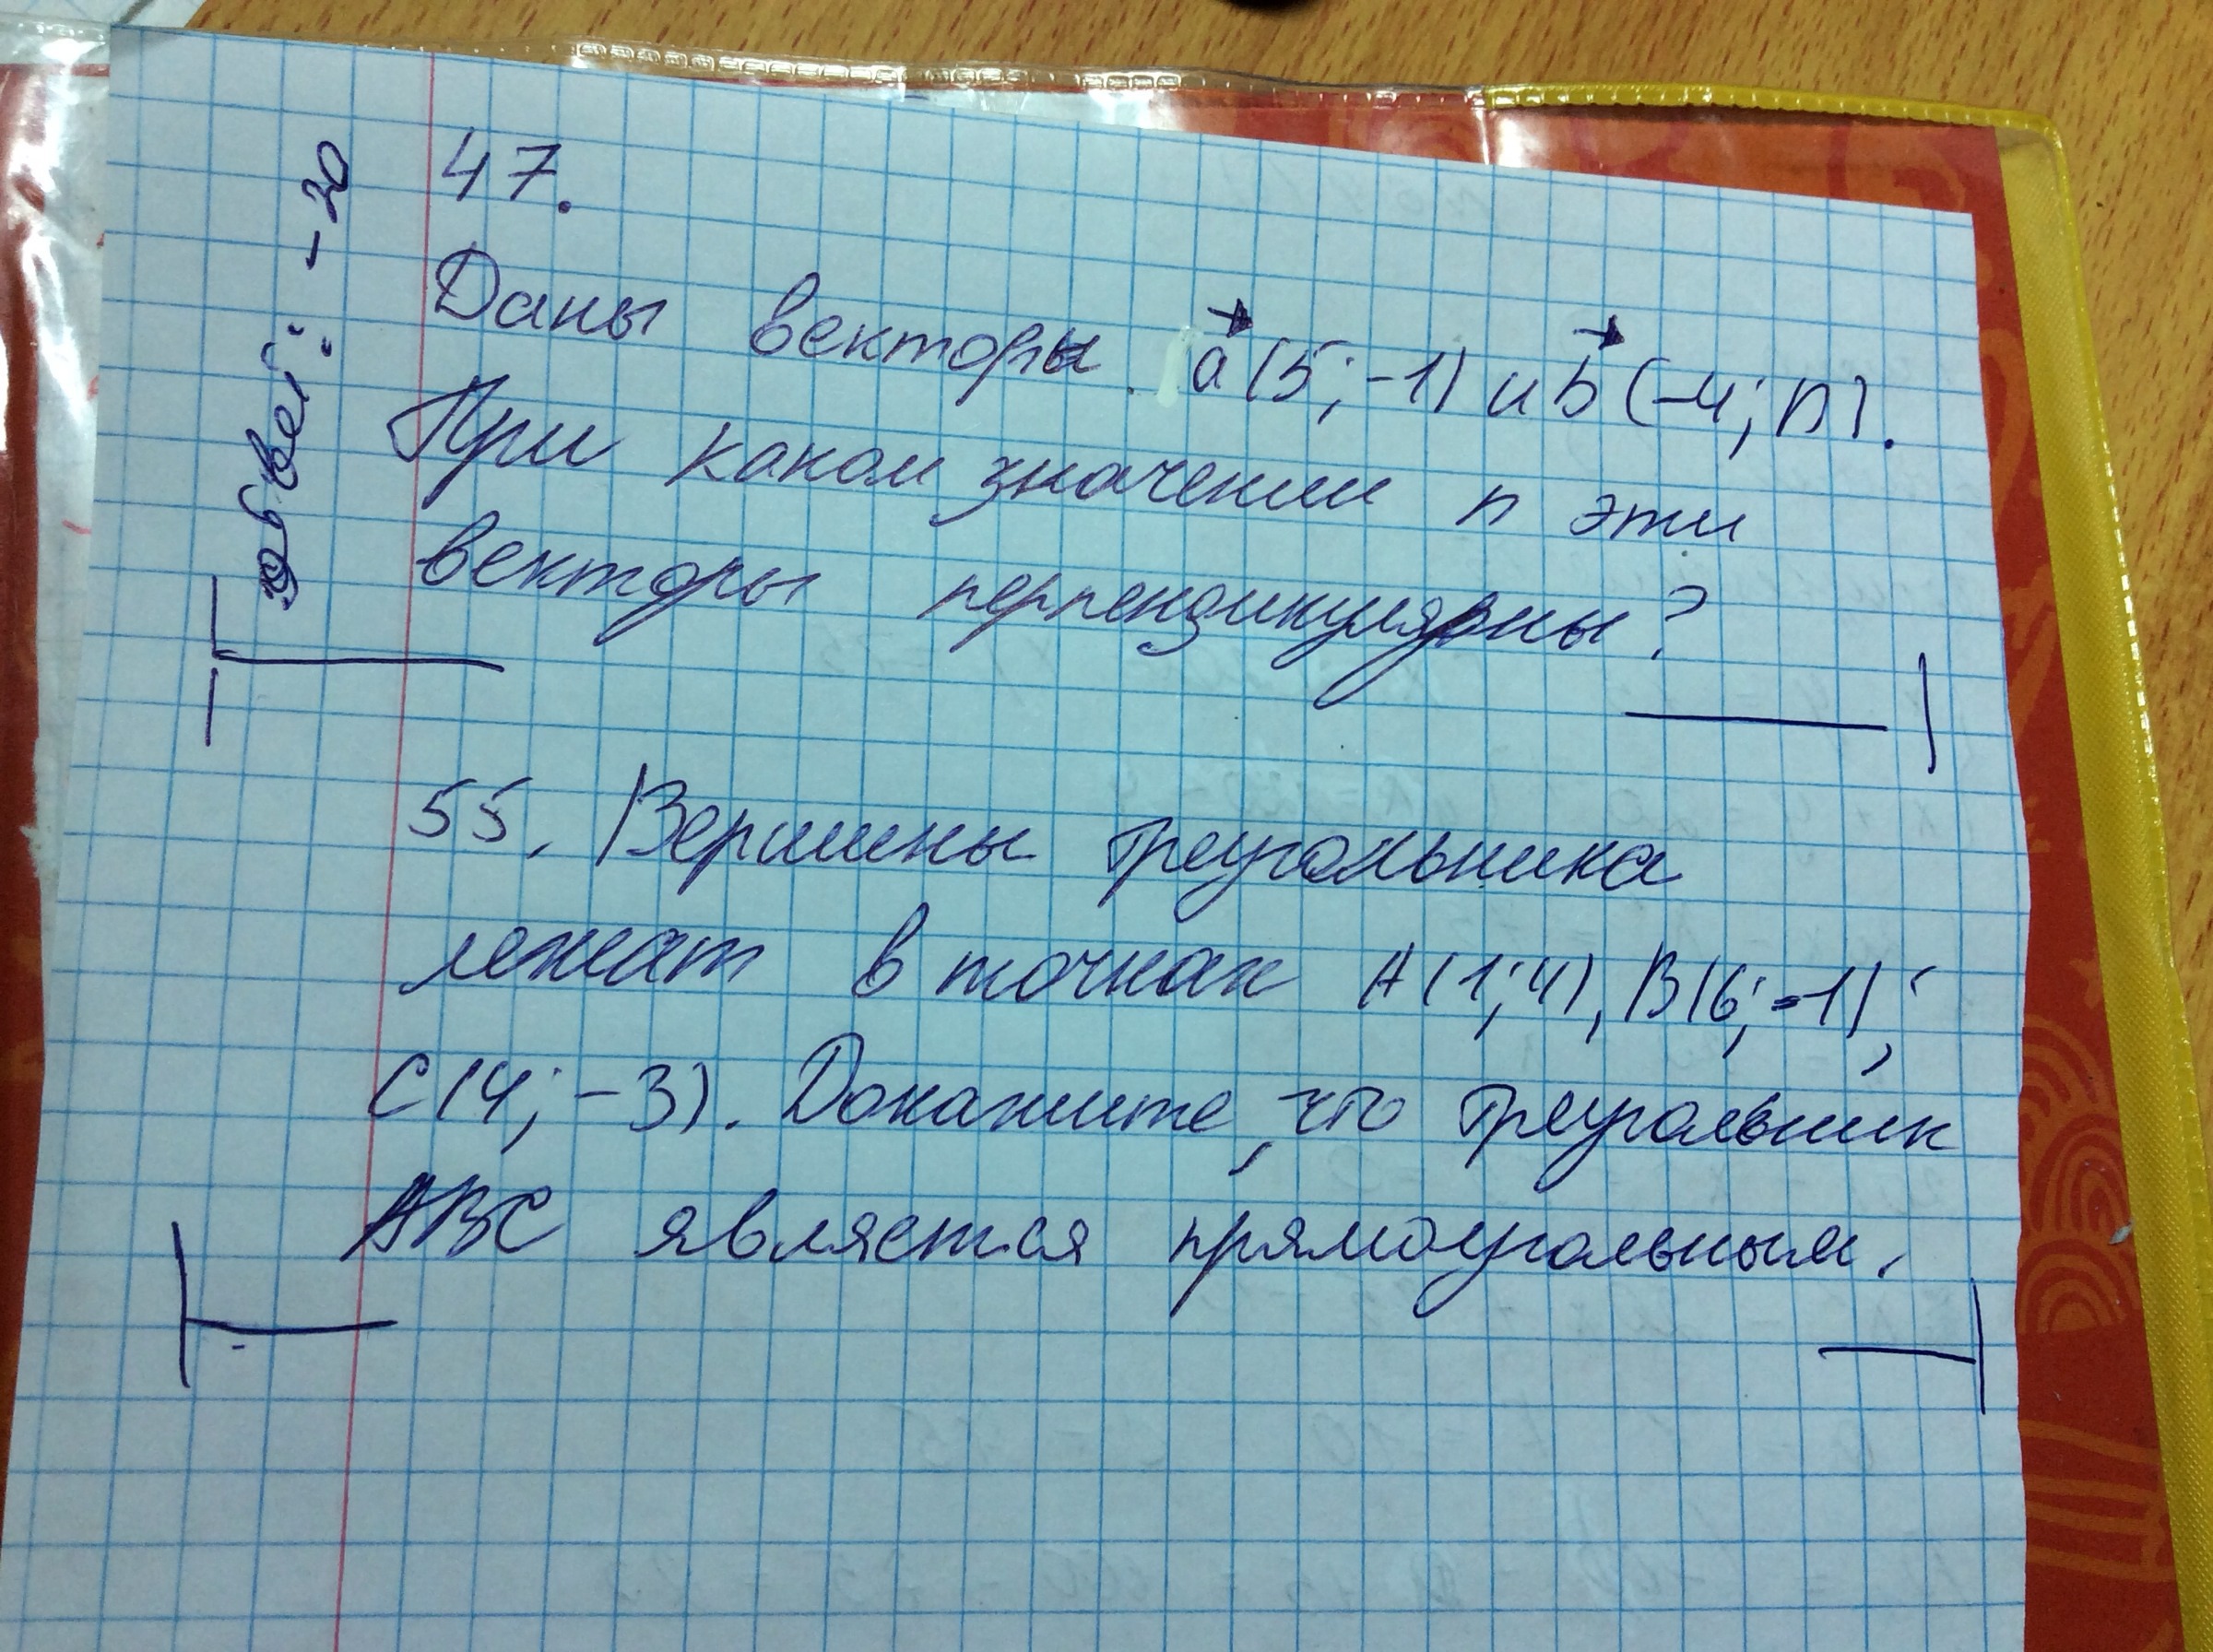 47.
Даны векторы. a(5; -1) и b(-4; n).
При каком значении n эти
векторы перпендикулярны?
ответ: -20
55. Вершины треугольника
лежат в точках A(1; 4), B(6; -1);
C(4; -3). Докажите, что треугольник
ABC является прямоугольным.